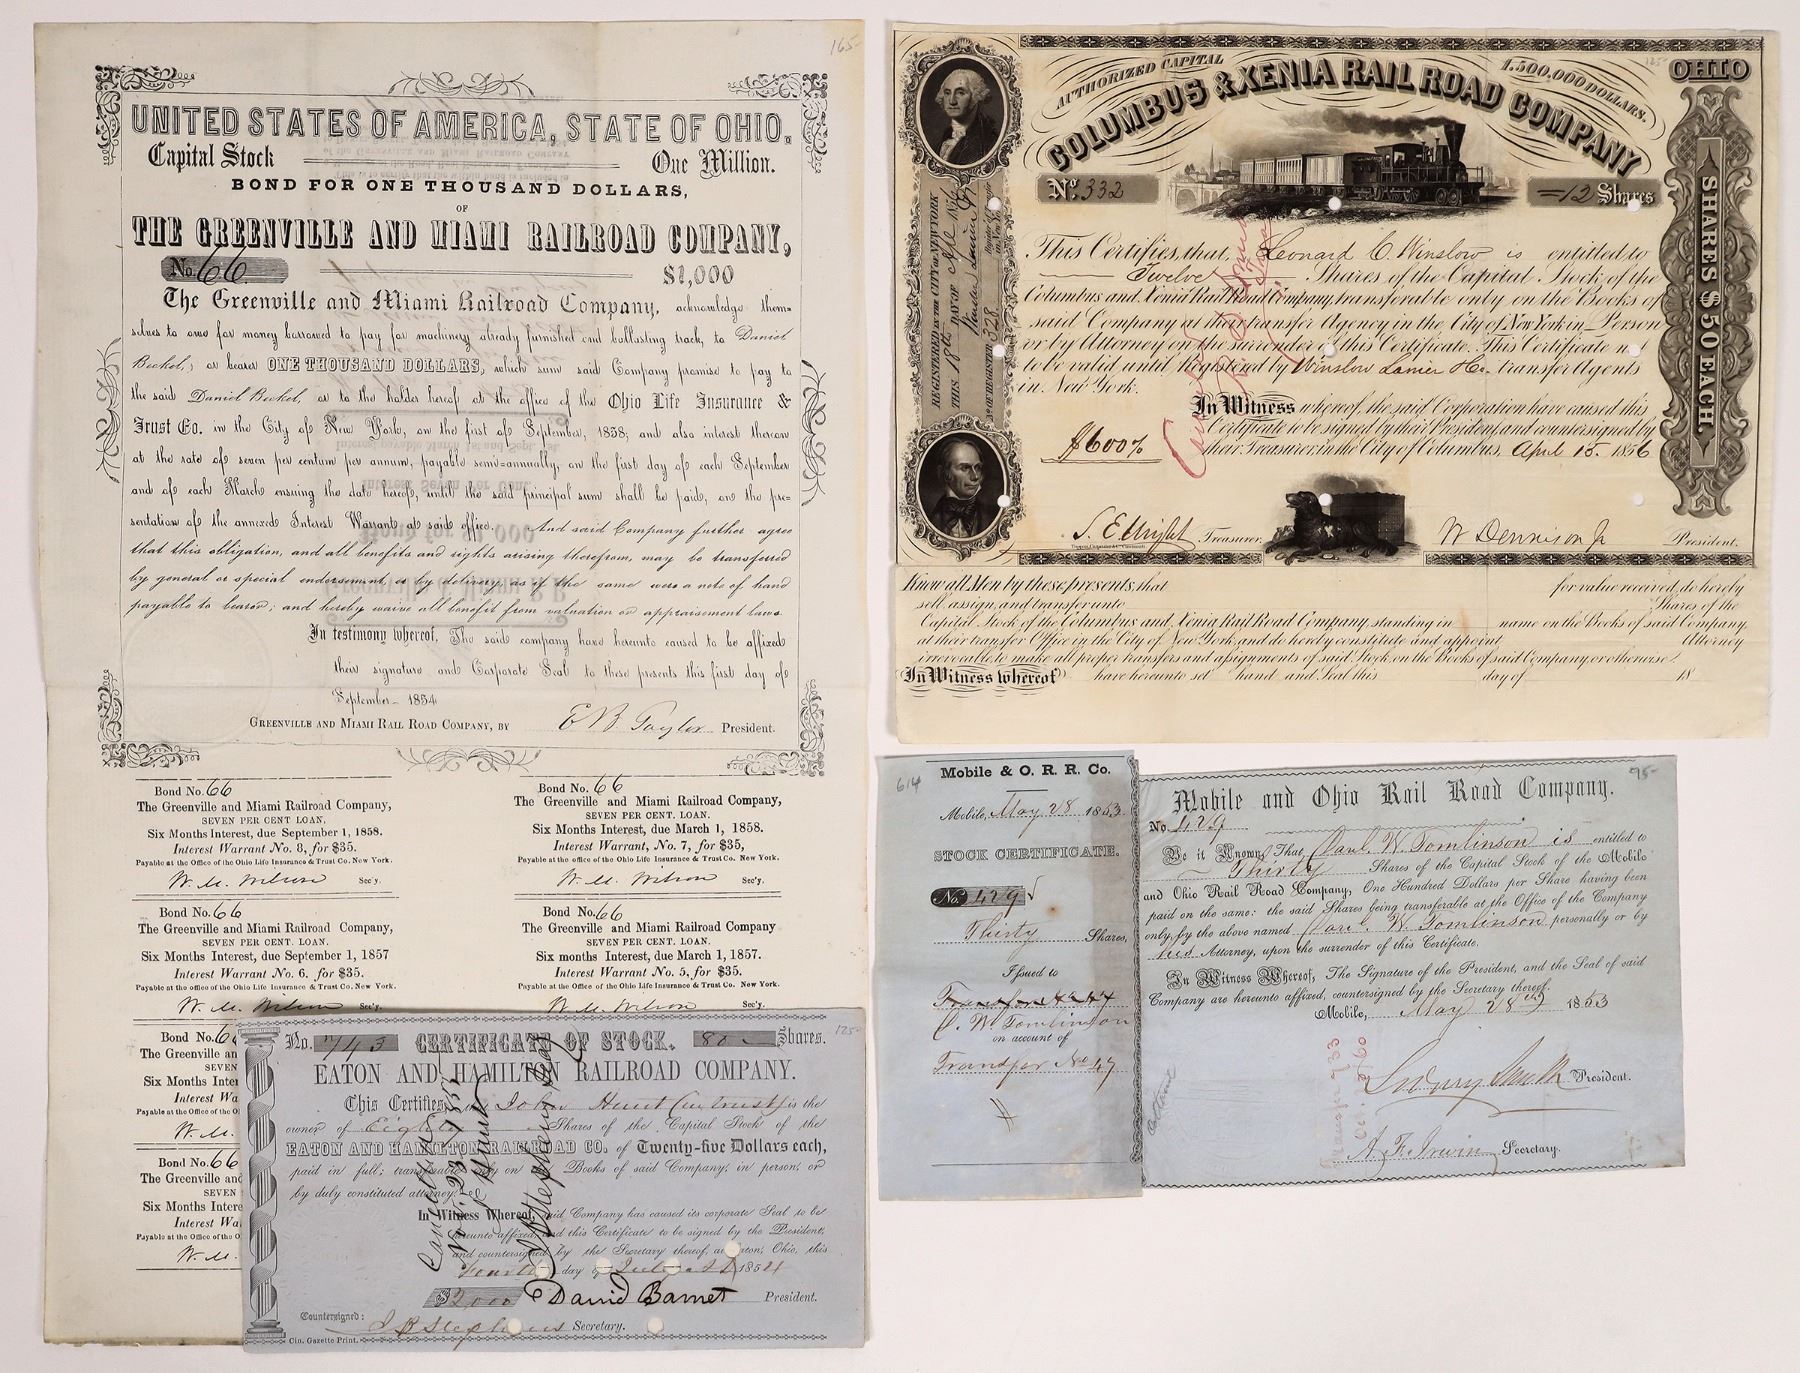 165-
UNITED STATES OF AMERICA, STATE OF OHIO.
Capital Stock One Million.
BOND FOR ONE THOUSAND DOLLARS,
OF
THE GREENVILLE AND MIAMI RAILROAD COMPANY,
No. 66 $1,000
The Greenville and Miami Railroad Company, acknowledge them-
selves to owe for money borrowed to pay for machinery already furnished and ballasting track, to Daniel
Beckel, or bearer ONE THOUSAND DOLLARS, which sum said Company promise to pay to
the said Daniel Beckel, or to the holder hereof at the office of the Ohio Life Insurance &
Trust Co. in the City of New York, on the first of September, 1858; and also interest thereon
at the rate of seven per centum per annum, payable semi-annually, on the first day of each September
and of each March ensuing the date hereof, until the said principal sum shall be paid, on the pre-
sentation of the annexed Interest Warrant at said office. And said Company further agree
that this obligation, and all benefits and rights arising therefrom, may be transferred
by general or special endorsement, or by delivery, as if the same were a note of hand
payable to bearer; and hereby waive all benefit from valuation or appraisement laws.
In testimony whereof, The said company have hereunto caused to be affixed
their signature and Corporate Seal to these presents this first day of
September- 1854
GREENVILLE AND MIAMI RAIL ROAD COMPANY, BY E B Taylor President.
Bond No. 66
The Greenville and Miami Railroad Company,
SEVEN PER CENT. LOAN.
Six Months Interest, due September 1, 1858.
Interest Warrant No. 8, for $35,
Payable at the Office of the Ohio Life Insurance & Trust Co. New York.
W. M. Wilson Sec'y.
Bond No. 66
The Greenville and Miami Railroad Company,
SEVEN PER CENT. LOAN.
Six Months Interest, due March 1, 1858.
Interest Warrant No. 7, for $35,
Payable at the office of the Ohio Life Insurance & Trust Co. New York.
W. M. Wilson Sec'y.
Bond No. 66
The Greenville and Miami Railroad Company,
SEVEN PER CENT. LOAN.
Six Months Interest, due September 1, 1857
Interest Warrant No. 6. for $35.
Payable at the Office of the Ohio Life Insurance & Trust Co. New York.
W. M. Wilson Sec'y.
Bond No. 66
The Greenville and Miami Railroad Company,
SEVEN PER CENT. LOAN.
Six months Interest, due March 1, 1857.
Interest Warrant No. 5, for $35.
Payable at the Office of the Ohio Life Insurance & Trust Co. New York.
W. M. Wilson Sec'y.
Bond No. 6
The Greenville an
SEVEN
Six Months Inter
Interest Wa
Payable at the Office of the O
W. M.
Bond No. 66
The Greenville and
SEVEN
Six Months Intere
Interest Wa
Payable at the Office of the Ohi
W. M.
125-
No. 743 CERTIFICATE OF STOCK. 80 Shares.
EATON AND HAMILTON RAILROAD COMPANY.
This Certifies, John Hunt (in trust) is the
owner of Eighty Shares of the Capital Stock of the
EATON AND HAMILTON RAILROAD CO. of Twenty-five Dollars each,
paid in full; transferable only on Books of said Company; in person; or
by duly constituted attorney.
In Witness Whereof, said Company has caused its corporate Seal to be
hereunto affixed, and this Certificate to be signed by the President,
and countersigned by the Secretary thereof, at Eaton, Ohio, this
Fourth day of 1854
$2,000 David Barnet President.
Countersigned: J B Stephens Secretary.
Cin. Gazette Print.
AUTHORIZED CAPITAL 1.500,000 DOLLARS.
COLUMBUS & XENIA RAIL ROAD COMPANY
OHIO
SHARES $50 EACH.
No. 332 12 Shares
REGISTERED IN THE CITY OF NEW YORK
THIS 18th DAY OF 1856
No. OF REGISTER 328
This Certifies that, Leonard C. Winslow is entitled to
Twelve Shares of the Capital Stock of the
Columbus and Xenia Rail Road Company, transferable only on the Books of
said Company at their transfer Agency in the City of New York in Person
or by Attorney on the surrender of this Certificate. This Certificate not
to be valid until Registered by Winslow Lanier & Co. transfer Agents
in New York.
In Witness whereof, the said Corporation have caused this
Certificate to be signed by their President, and countersigned by
$600% their Treasurer, in the City of Columbus, April 15. 1856
S. E. Wright, Treasurer. W Dennison Jr President.
Know all Men by these presents, that for value received, do hereby
sell, assign, and transfer unto Shares of the
Capital Stock of the Columbus and Xenia Rail Road Company, standing in name on the Books of said Company,
at their transfer Office in the City of New York, and do hereby constitute and appoint, Attorney
irrevocable to make all proper transfers and assignments of said Stock, on the Books of said Company, or otherwise.
In Witness whereof have hereunto set hand and Seal this day of 18
614
Mobile & O. R. R. Co.
Mobile, May 28 1853
STOCK CERTIFICATE.
No. 429
Thirty Shares,
Issued to
P. W. Tomlinson
on account of
Transfer No 47
95-
Mobile and Ohio Rail Road Company.
No. 429
Be it Known, That Paul W. Tomlinson is entitled to
Thirty Shares of the Capital Stock of the Mobile
and Ohio Rail Road Company, One Hundred Dollars per Share having been
paid on the same: the said Shares being transferable at the Office of the Company
only, by the above named Paul W Tomlinson personally or by
his Attorney, upon the surrender of this Certificate.
In Witness Whereof, The Signature of the President, and the Seal of said
Company are hereunto affixed, countersigned by the Secretary thereof.
Mobile, May 28th 1853
Sidney Smith President.
A. F. Irwin Secretary.